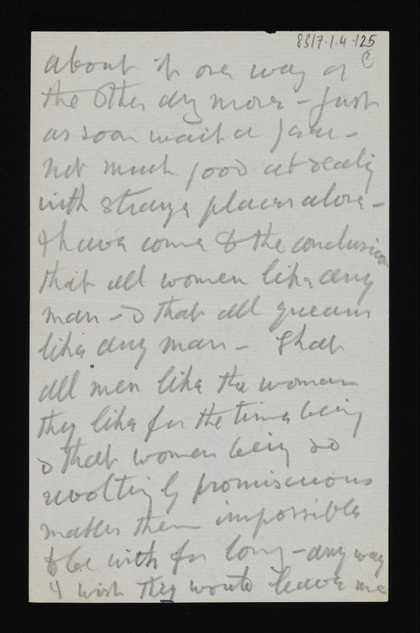 8317.1.4.125
about it one way or
the other any more – Just
as soon wait a year –
not much good at dealing
with strange places alone –
I have come to the conclusion
that all women like any
man – & that all queans
like any man – that
all men like the woman
they like for the time being
& that women being so
revoltingly promiscuous
makes them impossible
to be with for long – any way
I wish they would leave me